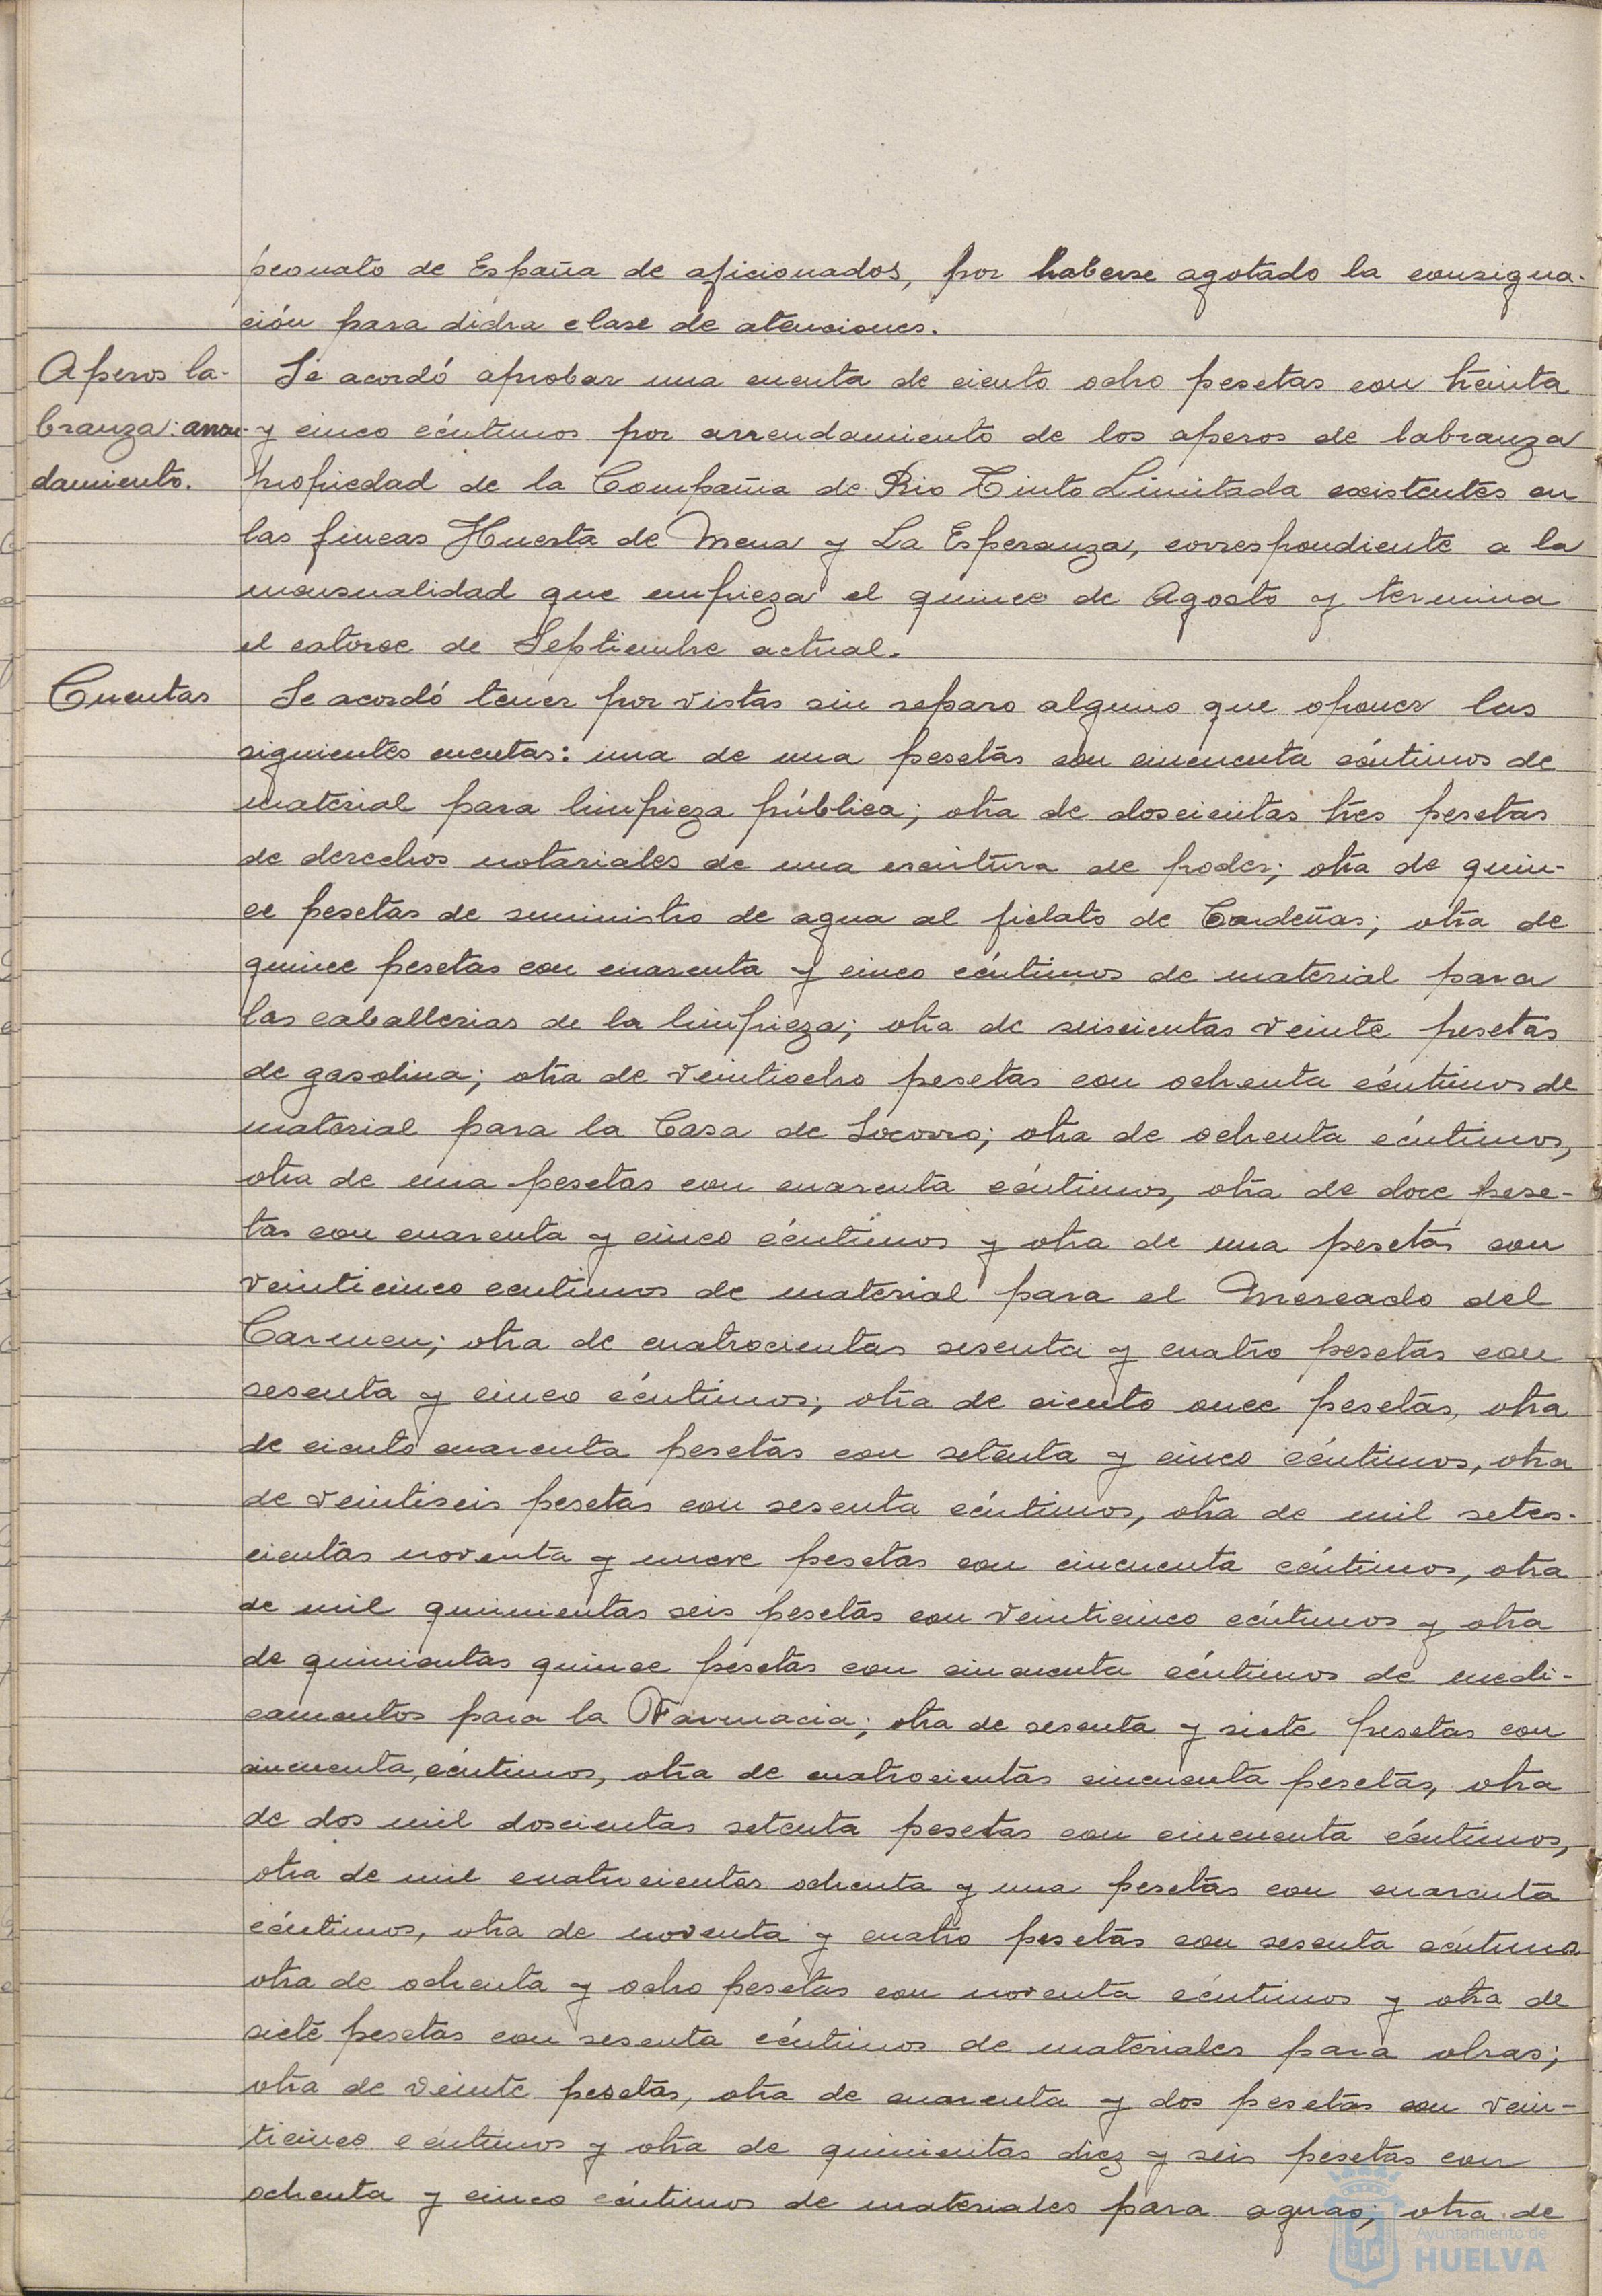 peonato de España de aficionados, por haberse agotado la consigna-
ción para dicha clase de atenciones.
Aperos la-
branza: arren-
damiento.
Se acordó aprobar una cuenta de ciento ocho pesetas con treinta
y cinco céntimos por arrendamiento de los aperos de labranza
propiedad de la Compañia de Rio Tinto Limitada existentes en
las fincas Huerta de Mena y La Esperanza, correspondiente a la
mensualidad que empieza el quince de Agosto y termina
el catorce de Septiembre actual.
Cuentas
Se acordó tener por vistas sin reparo alguno que oponer las
siguientes cuentas: una de una pesetas con cincuenta céntimos de
material para limpieza pública; otra de doscientas tres pesetas
de derechos notariales de una escritura de poder; otra de quin-
ce pesetas de suministro de agua al fielato de Cardeñas; otra de
quince pesetas con cuarenta y cinco céntimos de material para
las caballerias de la limpieza; otra de seiscientas veinte pesetas
de gasolina; otra de veintiocho pesetas con ochenta céntimos de
material para la Casa de Socorro; otra de ochenta céntimos,
otra de una pesetas con cuarenta céntimos, otra de doce pese-
tas con cuarenta y cinco céntimos y otra de una pesetas con
veinticinco centimos de material para el Mercado del
Carmen; otra de cuatrocientas sesenta y cuatro pesetas con
sesenta y cinco céntimos; otra de ciento once pesetas, otra
de ciento cuarenta pesetas con setenta y cinco céntimos, otra
de veintiseis pesetas con sesenta céntimos, otra de mil setes-
cientas noventa y nueve pesetas con cincuenta céntimos, otra
de mil quinientas seis pesetas con veinticinco céntimos y otra
de quinientas quince pesetas con cincuenta céntimos de medi-
camentos para la Farmacia; otra de sesenta y siete pesetas con
cincuenta, céntimos, otra de cuatrocientas cincuenta pesetas, otra
de dos mil doscientas setenta pesetas con cincuenta céntimos,
otra de mil cuatrocientas ochenta y una pesetas con cuarenta
céntimos, otra de noventa y cuatro pesetas con sesenta céntimos
otra de ochenta y ocho pesetas con noventa céntimos y otra de
siete pesetas con sesenta céntimos de materiales para obras;
otra de veinte pesetas, otra de cuarenta y dos pesetas con vein-
ticinco céntimos y otra de quinientas diez y seis pesetas con
ochenta y cinco céntimos de materiales para aguas; otra de
Ayuntamiento de
HUELVA